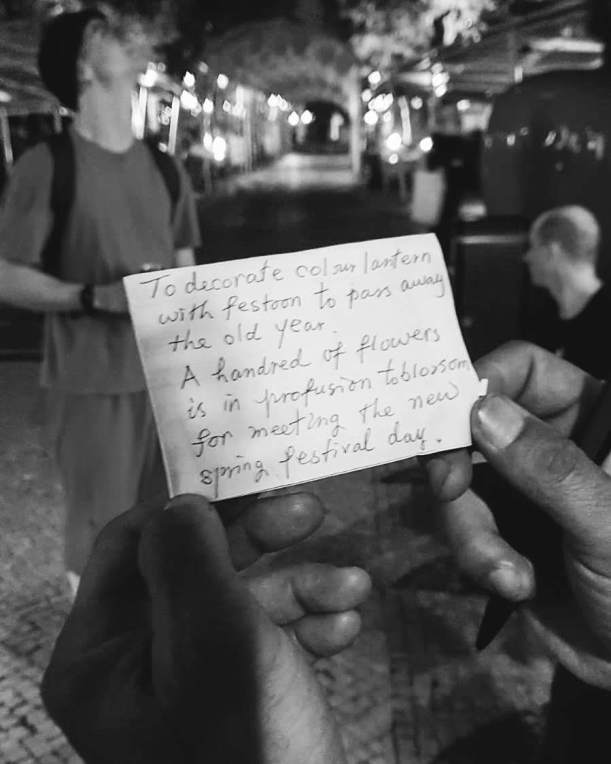 To decorate colour lantern
with festoon to pass away
the old year.
A handred of flowers
is in profusion to blossom
for meeting the new
spring festival day.